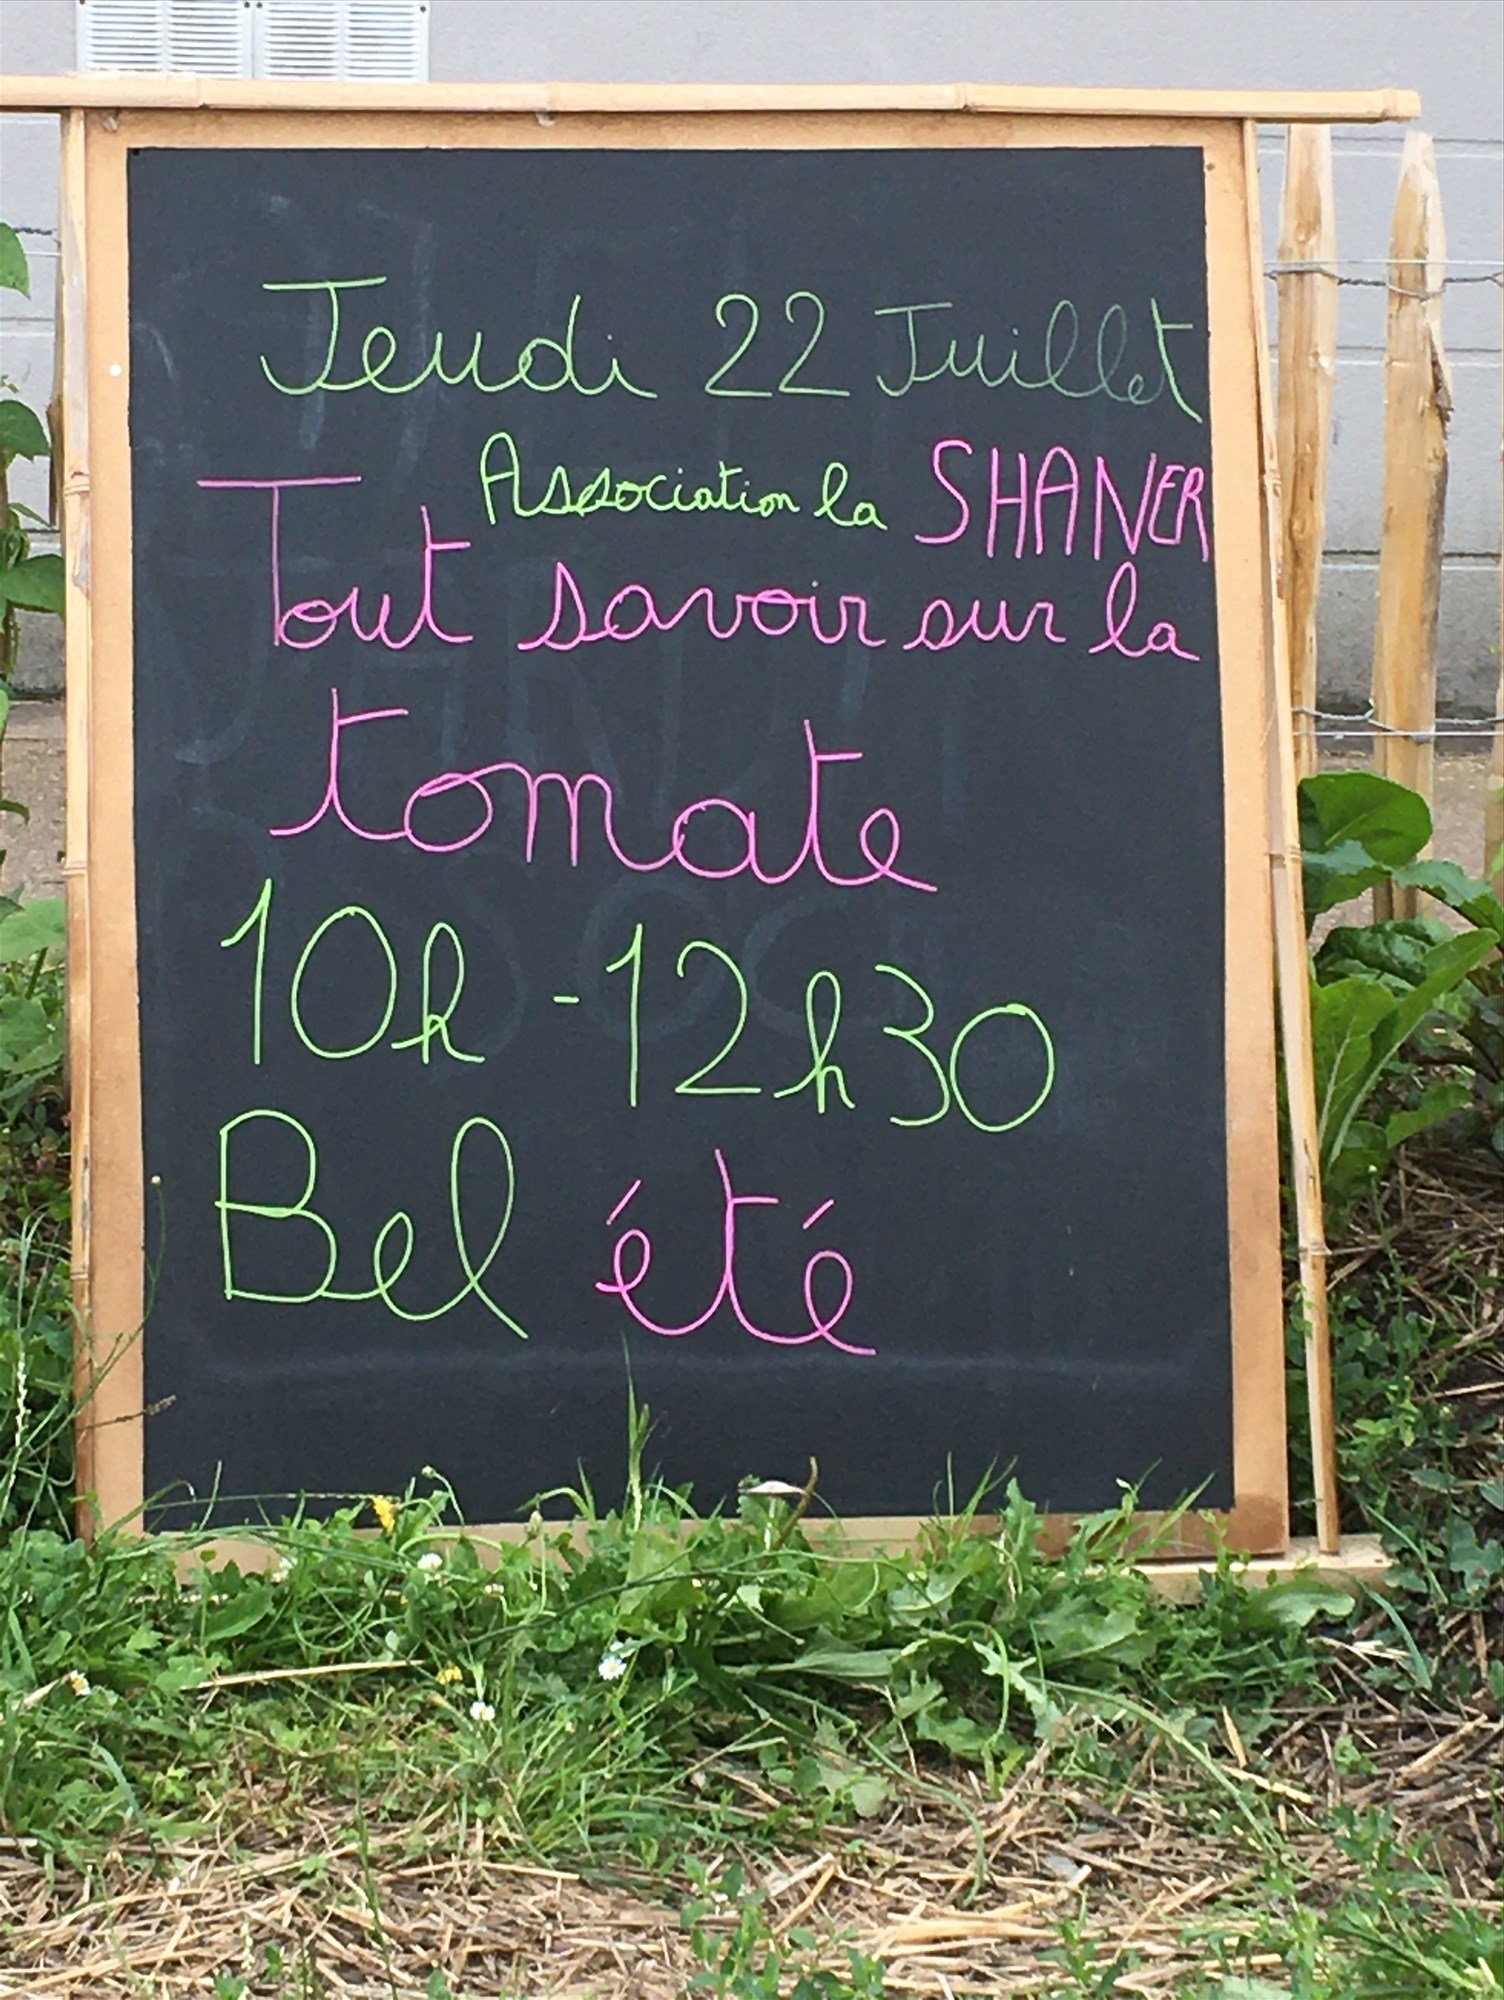 Jeudi 22 Juillet
Association la SHANER
Tout savoir sur la
tomate
10h - 12h30
Bel été